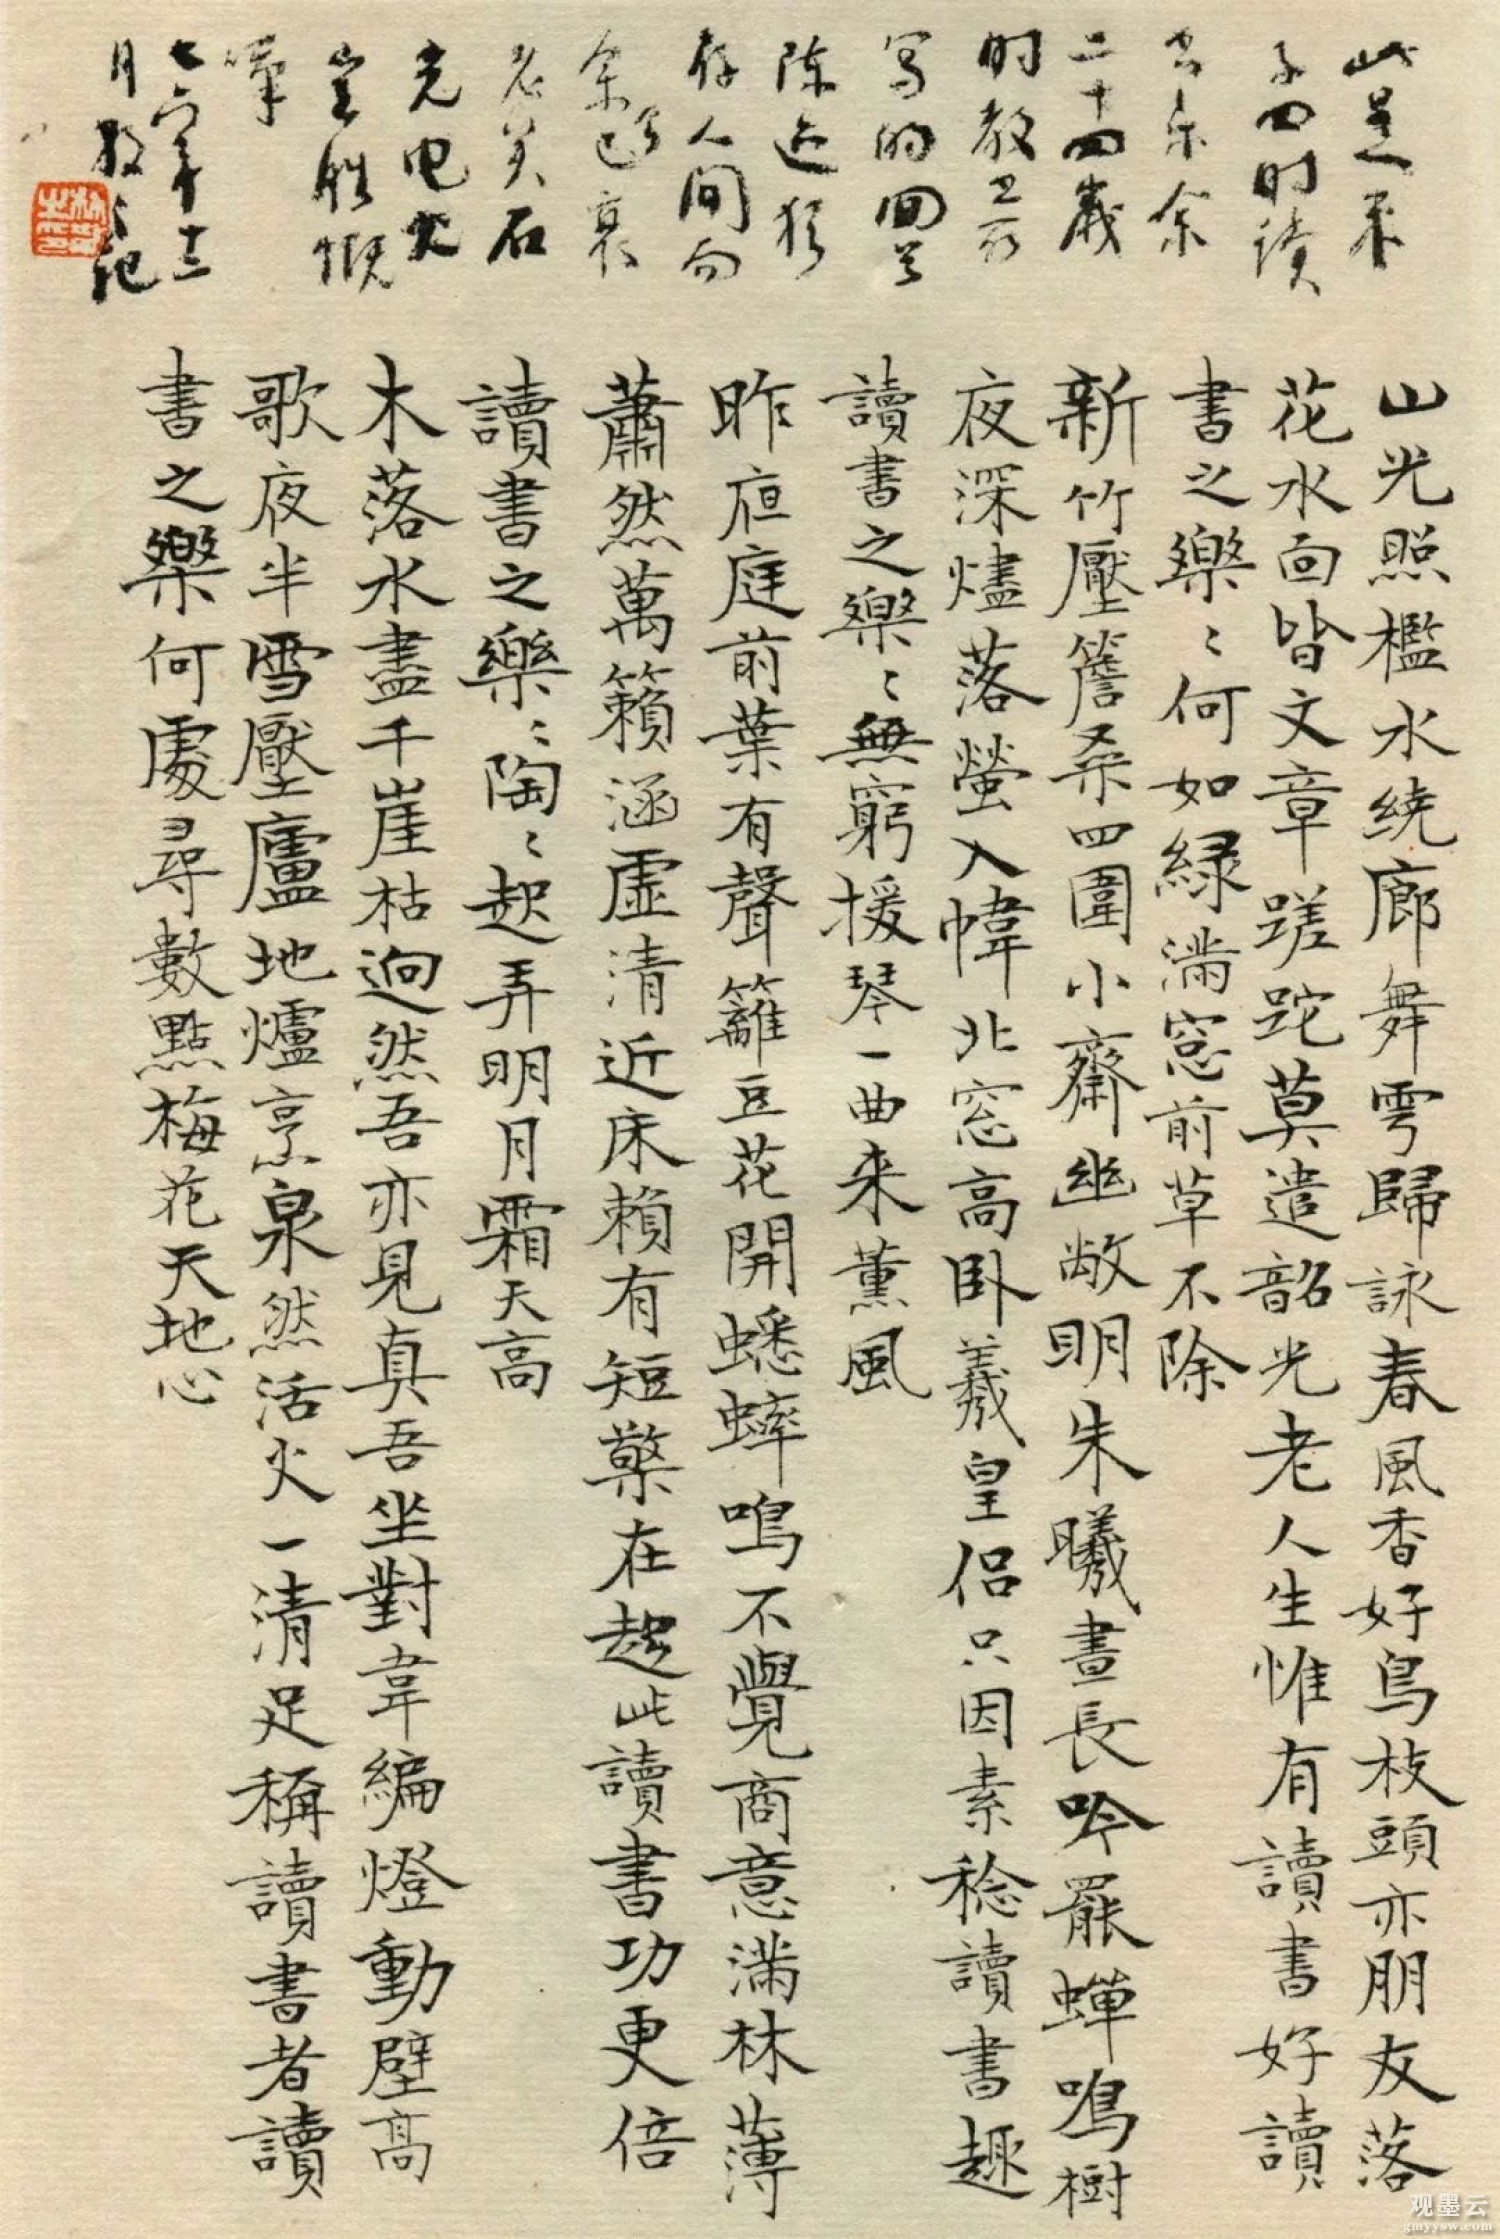 此是朱
子四时读
书乐余
二十四岁
时教
写的回首
陈迹犹
存人间而
余已衰
老矣石
光电火
岂胜慨
嘆
七六年十二
月散之记
山光照檻水繞廊舞雩歸詠春風香好鳥枝頭亦朋友落
花水面皆文章蹉跎莫遣韶光老人生惟有讀書好讀
書之樂〻何如緑滿窓前草不除
新竹壓簷桑四圍小齋幽敞明朱曦晝長吟罷蟬鳴樹
夜深燼落螢入幃北窓高卧羲皇侶只因素稔讀書趣
讀書之樂〻無窮援琴一曲来薰風
昨庭前葉有聲籬豆花開蟋蟀鳴不覺商意滿林薄
蕭然萬籟涵虛清近床賴有短檠在趁此讀書功更倍
讀書之樂〻陶〻起弄明月霜天高
木落水盡千崖枯迥然吾亦見真吾坐對韋編燈動壁高
歌夜半雪壓廬地爐烹泉然活火一清足稱讀書者讀
書之樂何處尋數點梅花天地心
观墨云
gmyysw.com